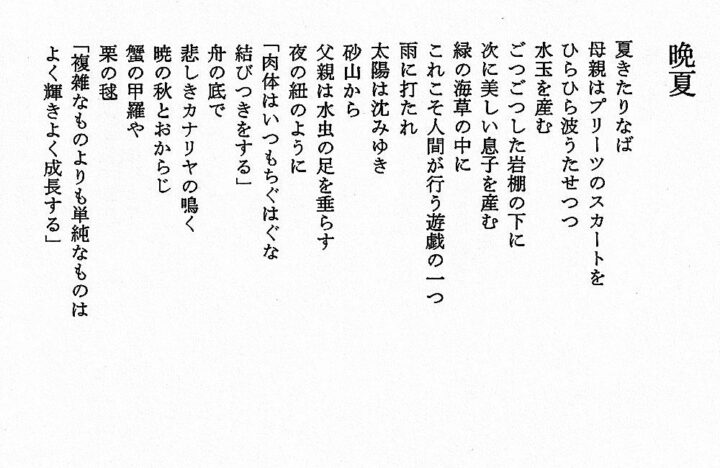 晩夏
夏きたりなば
母親はプリーツのスカートを
ひらひら波うたせつつ
水玉を産む
ごつごつした岩棚の下に
次に美しい息子を産む
緑の海草の中に
これこそ人間が行う遊戯の一つ
雨に打たれ
太陽は沈みゆき
砂山から
父親は水虫の足を垂らす
夜の紐のように
「肉体はいつもちぐはぐな
結びつきをする」
舟の底で
悲しきカナリヤの鳴く
暁の秋とおからじ
蟹の甲羅や
栗の毬
「複雑なものよりも単純なものは
よく輝きよく成長する」